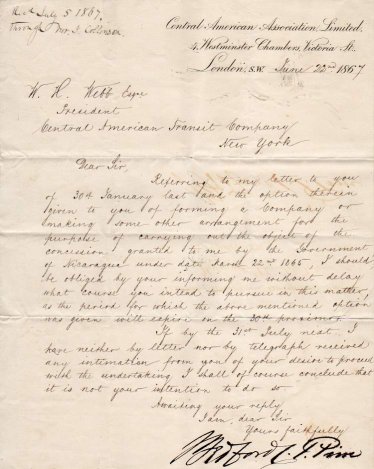 Recd July 5 1867.
through Mr. J. Collinson
Central American Association, Limited.
4, Westminster Chambers, Victoria St.
London, S.W. June 22nd 1867
W. H. Webb Esqre
President
Central American Transit Company
New York
Dear Sir,
Referring to my letter to you
of 30th January last and the option therein
given to you of forming a Company or
making some other arrangement for the
purpose of carrying out the object of the
concession, granted to me by the Government
of Nicaragua under date March 22nd 1865, I should
be obliged by your informing me without delay
what course you intend to pursue in this matter,
as the period for which the above mentioned option
was given will expire on the 30th proximo.
If by the 31st July next, I
have neither by letter nor by telegraph received
any intimation from you of your desire to proceed
with the undertaking I shall of course conclude that
it is not your intention to do so
Awaiting your reply
I am, dear Sir
Yours faithfully
Bedford C. T. Pim